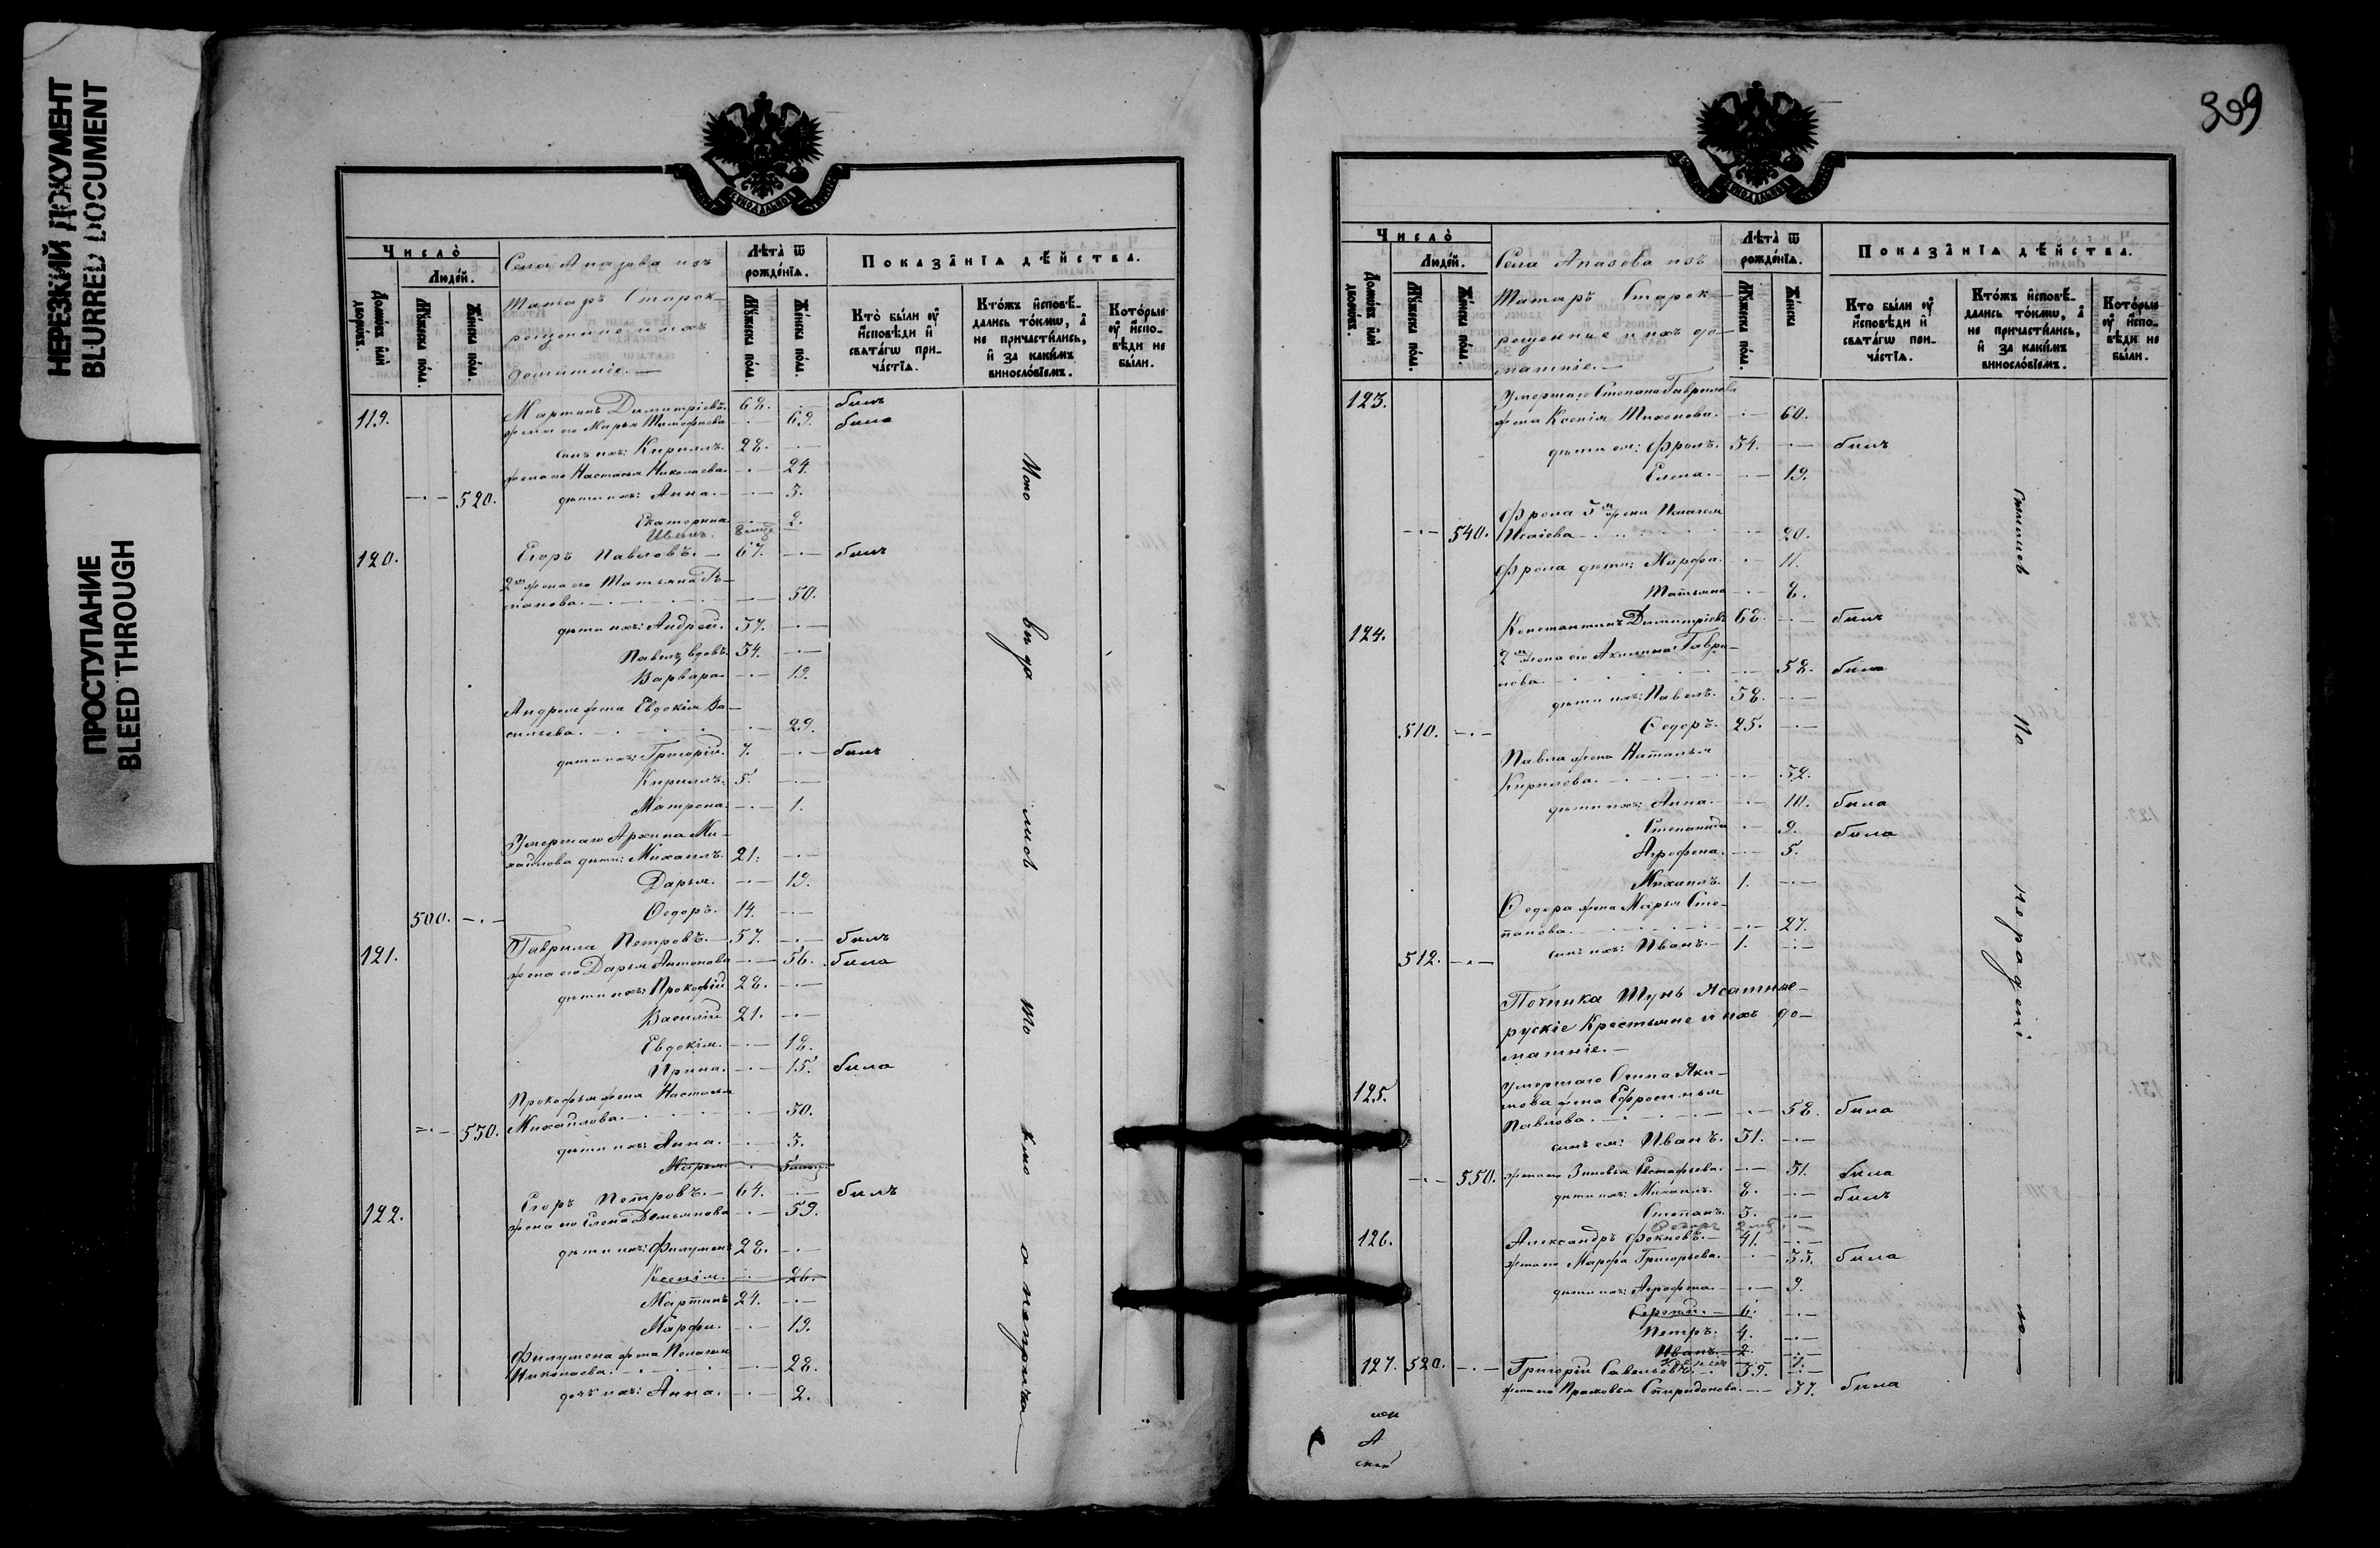 НЕРЕЗКИЙ ДОКУМЕНТ
BLURRED DOCUMENT
ПРОСТУПАНИЕ
BLEED THROUGH
Число̀
Людей.
Домѡвъ илѝ дворѡвъ.
Мꙋжеска пола.
Женска пола.
Села Апазова изъ
Татаръ Старок-
рещенные и ихъ
домашніе.
Лѣта̀ ѿ рожденїѧ.
Мꙋжеска пола.
Женска пола.
Показанїѧ дѣйства.
Кто̀ были ᲂу҆ исповѣди и свѧтагѡ причастїѧ.
Ктожъ исповѣдались токмѡ, а не причастились, и за какимъ винословїемъ.
Которые ᲂу҆ исповѣди не были.
119. Мартинъ Димитріевъ. 68. был
жена его Марья Тимофеева 69. была
сынъ ихъ: Кириллъ. 28.
жена его Настасья Николаева. 24.
520. дѣти ихъ: Анна. 3.
Екатерина 2.
Иванъ.
120. Егоръ Павловъ. 67. былъ
2я жена его Татьяна Сте-
панова. 50.
дѣти ихъ: Андрей. 37.
Павелъ вдовъ. 34.
Варвара. 19.
Андрея жена Евдокія Ва-
сильева. 29.
дѣти ихъ: Григорій. 7. былъ
Кириллъ. 5.
Матрона. 1.
Умершаго Архипа Ми-
хайлова дѣти: Михаилъ. 21.
Дарья. 19.
500. Ѳедоръ. 14.
121. Гаврила Петровъ. 57. былъ
жена его Дарья Антонова 56. была
дѣти ихъ: Прокофій 28.
Василій 21.
Евдокія. 18.
Ирина. 15. была
Прокофья жена Настасья
530. Михайлова. 30.
дѣти ихъ: Анна. 3.
Марья.
122. Егоръ Петровъ. 64. былъ
жена его Елена Демьянова 59.
дѣти ихъ: Филумень 28.
Ксенія. 26.
Мартинъ 24.
Марфа. 19.
Филумена жена Пелагея
Николаева. 28.
дочь ихъ: Анна. 2.
399
Число̀
Людей.
Домѡвъ илѝ дворѡвъ.
Мꙋжеска пола.
Женска пола.
Села Апазова изъ
Татаръ Старок-
рещенные и ихъ до-
машніе.
Лѣта̀ ѿ рожденїѧ.
Мꙋжеска пола.
Женска
Показанїѧ дѣйства.
Кто были ᲂу҆ исповѣди и свѧтагѡ причастїѧ.
Ктожъ исповѣдались токмѡ, а не причастились, и за какимъ винословїемъ.
Которые ᲂу҆ исповѣди не были.
123. Умершаго Степана Гаврилова
жена Ксенія Тихонова. 60.
дѣти ея: Фролъ. 34. былъ
Елена. 19.
Фрола 3я жена Пелагея
540. Исаіева 20.
Фрола дѣти: Марфа. 11.
Татьяна 8.
124. Константинъ Димитріевъ 68. былъ
2я жена его Акилина Гаври-
лова. 58. была
дѣти ихъ: Павелъ. 38.
510. Ѳедоръ. 25.
Павла жена Наталья
Кирилова. 32.
дѣти ихъ: Анна. 10. была
Степанида 9. была
Агрофена. 5.
Михаилъ. 1.
Ѳедора жена Марья Сте-
панова. 27.
512. сынъ ихъ: Иванъ. 1.
Починка Шунь Ясашные
рускіе Крестьяне и ихъ до-
машніе.
125. Умершаго Осипа Яки-
мова жена Ефросинья
Павлова. 58. была
сынъ ея: Иванъ. 31.
550. жена его Зиновья Евстафьева. 31. была
дѣти ихъ: Михаилъ. 8. былъ
Степанъ. 3.
126. Александръ Фокиовъ. 41.
жена его Марфа Григорьева. 35. была
дѣти ихъ: Агрофена. 9.
Сергей. 6.
Петръ. 4.
Иванъ. 2.
127. 520. Григорій Савельевъ. 39.
жена его Прасковья Спиридонова. 37. была